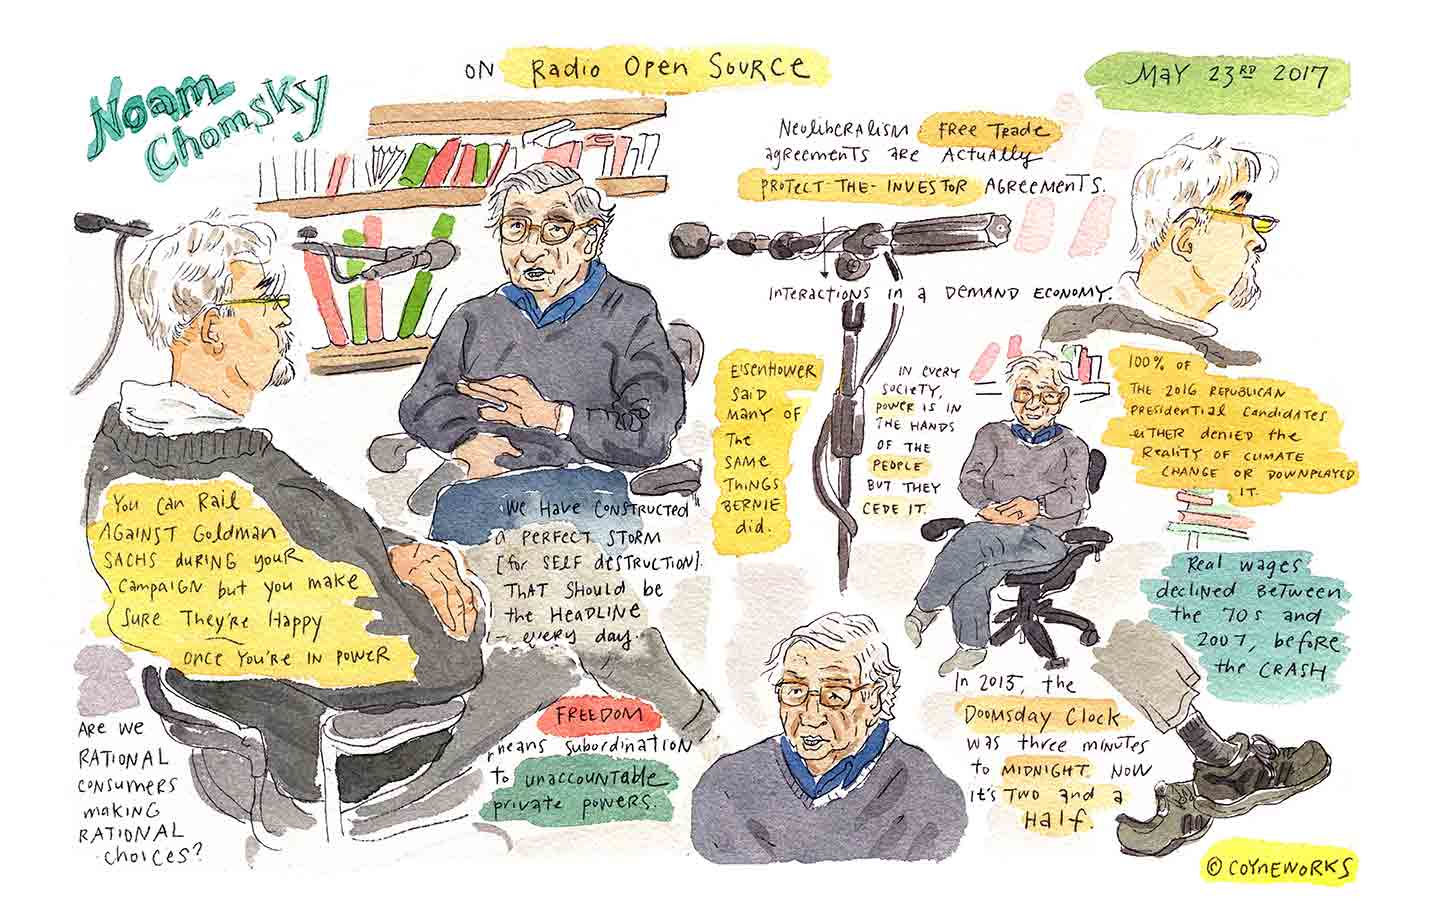 Noam
Chomsky
ON Radio Open Source
MaY 23RD 2017
NeoliberAlism: Free Trade
agreements are Actually
PROTECT-THE-INVESTOR AGREEMENTS.
INTERACTIONS in a DEMAND ECONOMY.
EISENHOWER
SAID
MANY OF
The
SAME
THINGS
BERNIE
did.
IN EVERY
SOCIETY,
POWER IS IN
THE HANDS
OF THE
PEOPLE
BUT THEY
CEDE IT.
100% OF
THE 2016 REPUBLICAN
PRESIDENTIAL CANDIDATES
EITHER DENIED the
REALITY OF CLIMATE
CHANGE OR DOWNPLAYED
IT.
You can Rail
AGAINST Goldman
SACHS DURING YOUR
CAMPAIGN but you make
SURE They're Happy
ONCE YOU'RE IN POWER
WE HAVE CONSTRUCTED
a PERFECT STORM
[for SELF DESTRUCTION].
THAT SHOULD be
the HEADLINE
every day.
Real wages
declined BETWEEN
the '70s and
2007, before
the CRASH
In 2015, the
Doomsday Clock
was three minutes
to MIDNIGHT. NOW
it's TWO and a
Half.
FREEDOM
means subordination
to unaccountable
private powers.
ARE WE
RATIONAL
CONSUMERS
MAKING
RATIONAL
choices?
© COYNEWORKS